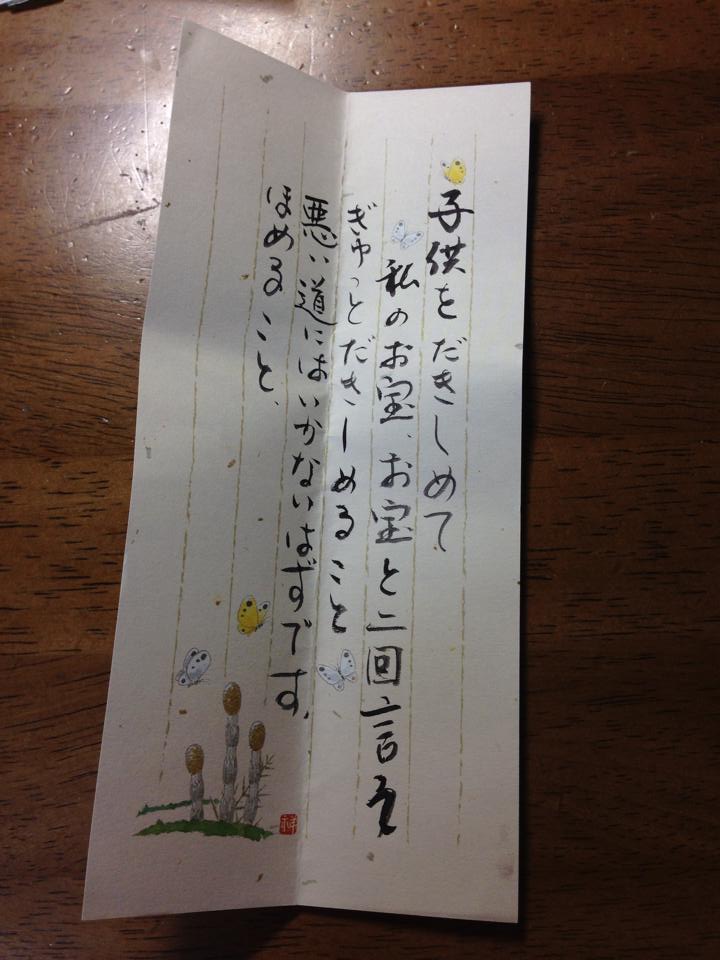 子供をだきしめて
私のお宝、お宝と二回言え
ぎゅっとだきしめること
悪い道にはいかないはずです。
ほめること、